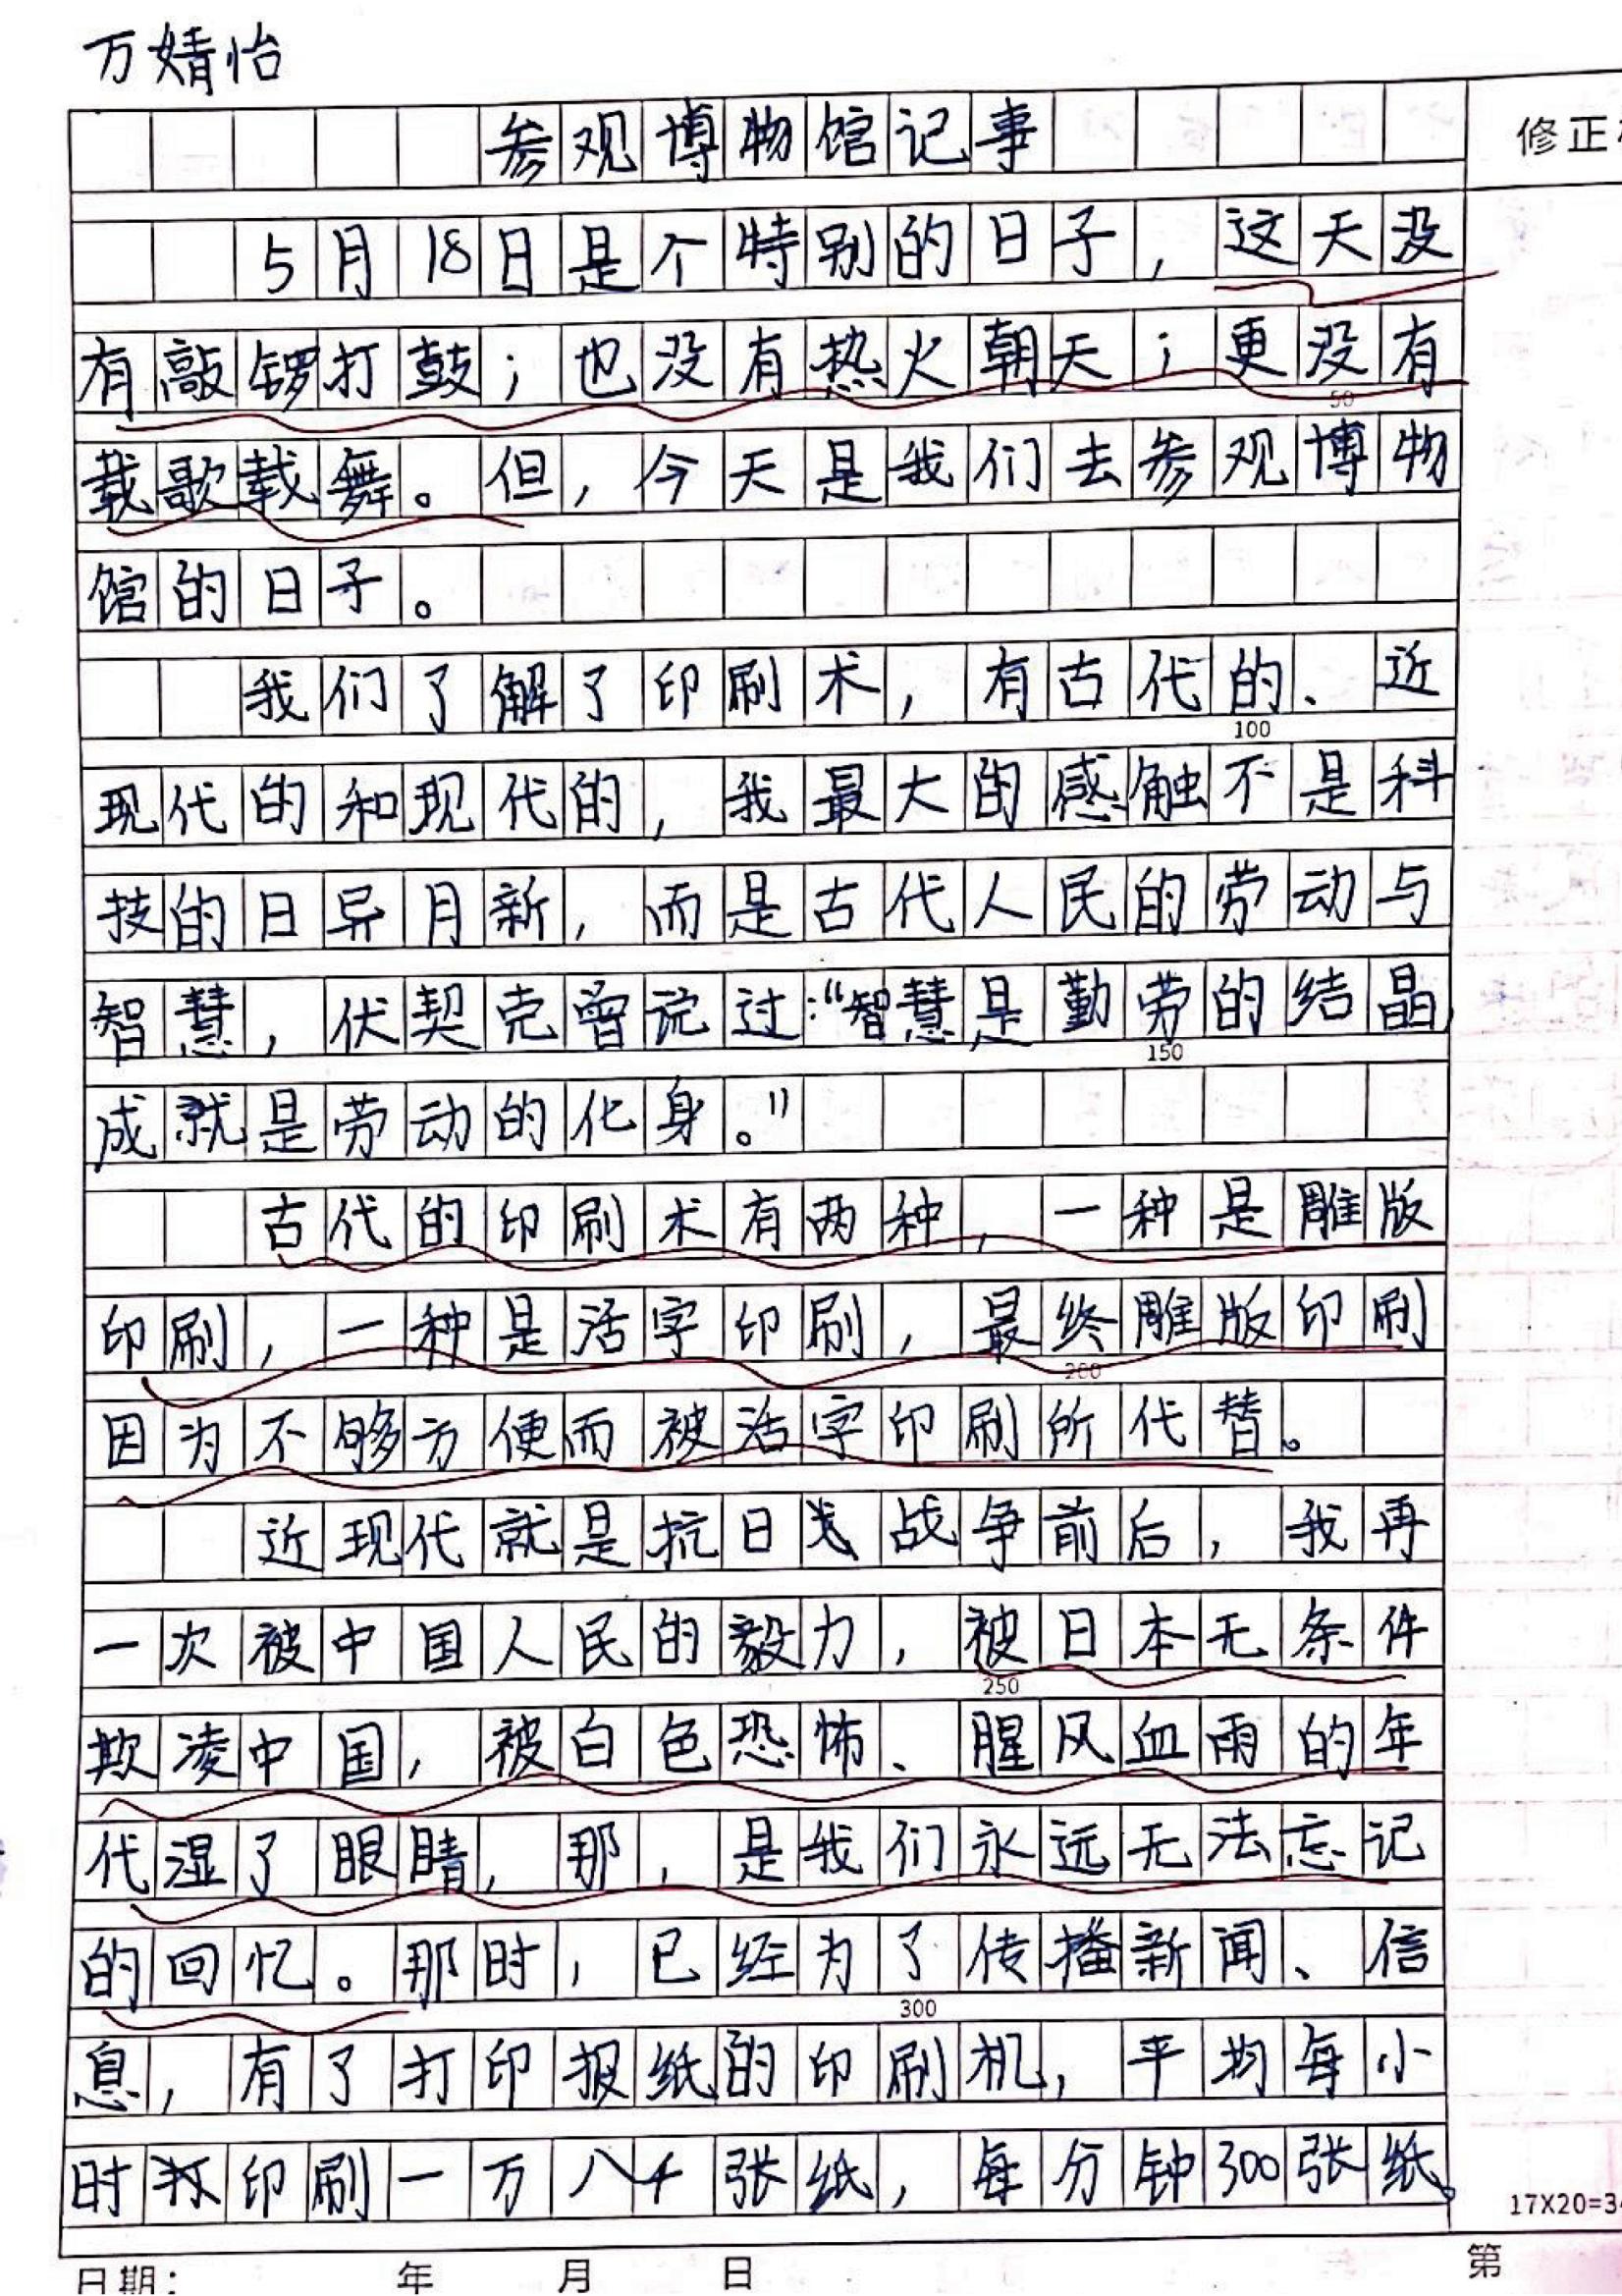 万婧怡
参观博物馆记事
修正
5月18日是个特别的日子,这天没
有敲锣打鼓;也没有热火朝天;更没有
50
载歌载舞。但,今天是我们去参观博物
馆的日子。
我们了解了印刷术,有古代的、近
100
现代的和现代的,我最大的感触不是科
技的日异月新,而是古代人民的劳动与
智慧,伏契克曾说过:“智慧是勤劳的结晶,
150
成就是劳动的化身。”
古代的印刷术有两种,一种是雕版
印刷,一种是活字印刷,最终雕版印刷
200
因为不够方便而被活字印刷所代替。
近现代就是抗日战争前后,我再
一次被中国人民的毅力,被日本无条件
250
欺凌中国,被白色恐怖、腥风血雨的年
代湿了眼睛,那,是我们永远无法忘记
的回忆。那时,已经为了传播新闻、信
300
息,有了打印报纸的印刷机,平均每小
时印刷一万八千张纸,每分钟300张纸。
17X20=3
日期: 年 月 日
第